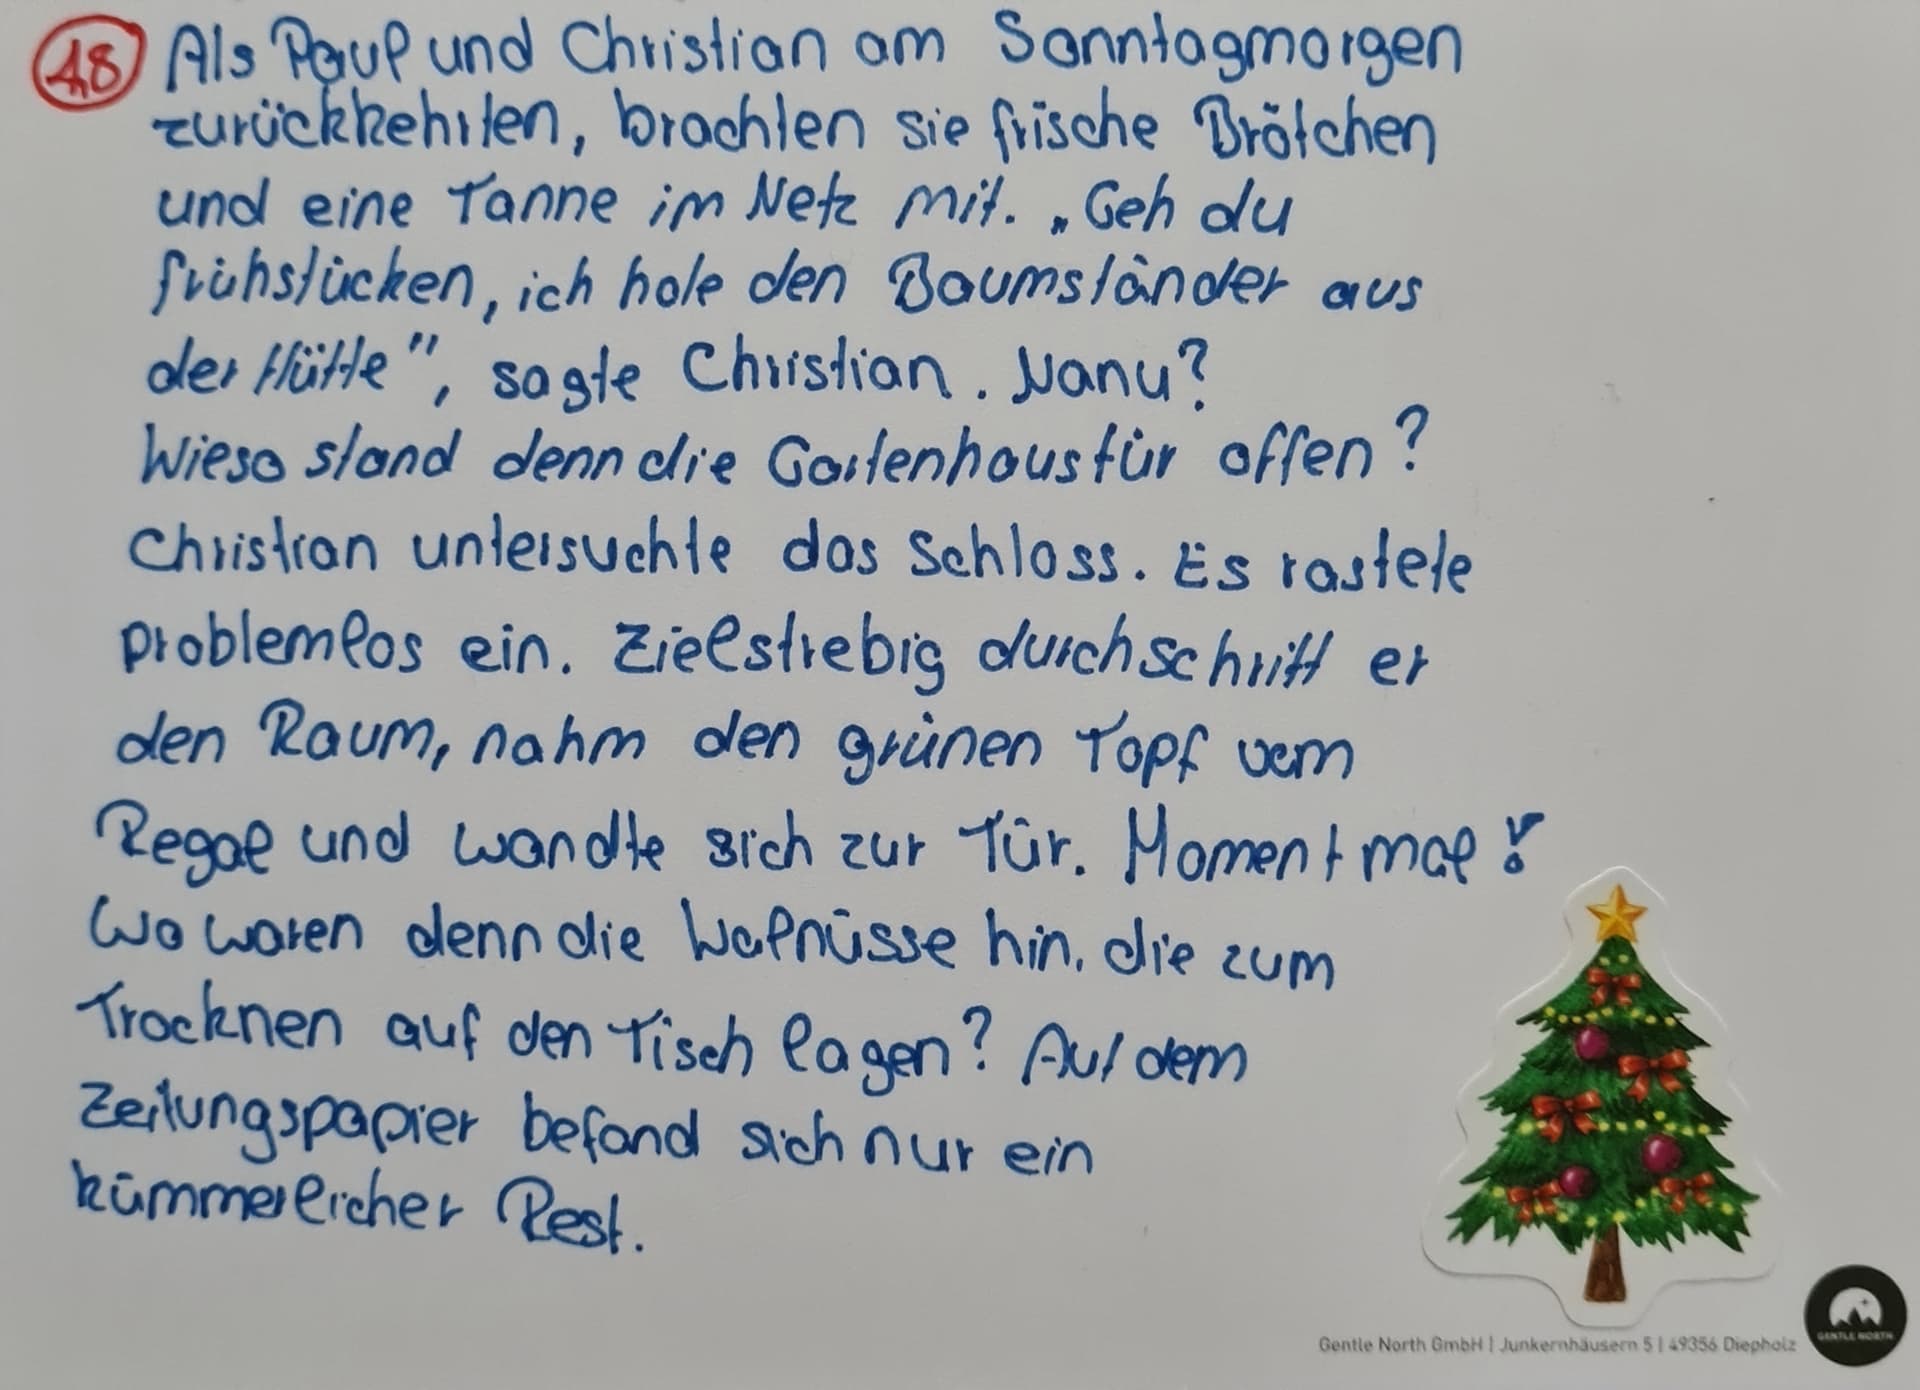 48 Als Paul und Christian am Sonntagmorgen
zurückkehrten, brachten sie frische Brötchen
und eine Tanne im Netz mit. „Geh du
frühstücken, ich hole den Baumständer aus
der Hütte", sagte Christian. Nanu?
Wieso stand denn die Gartenhaustür offen?
Christian untersuchte das Schloss. Es rastete
problemlos ein. Zielstrebig durchschritt er
den Raum, nahm den grünen Topf vom
Regal und wandte sich zur Tür. Moment mal!
Wo waren denn die Walnüsse hin, die zum
Trocknen auf den Tisch lagen? Auf dem
Zeitungspapier befand sich nur ein
kümmerlicher Rest.
Gentle North GmbH | Junkernhäusern 5 | 49356 Diepholz
GENTLE NORTH